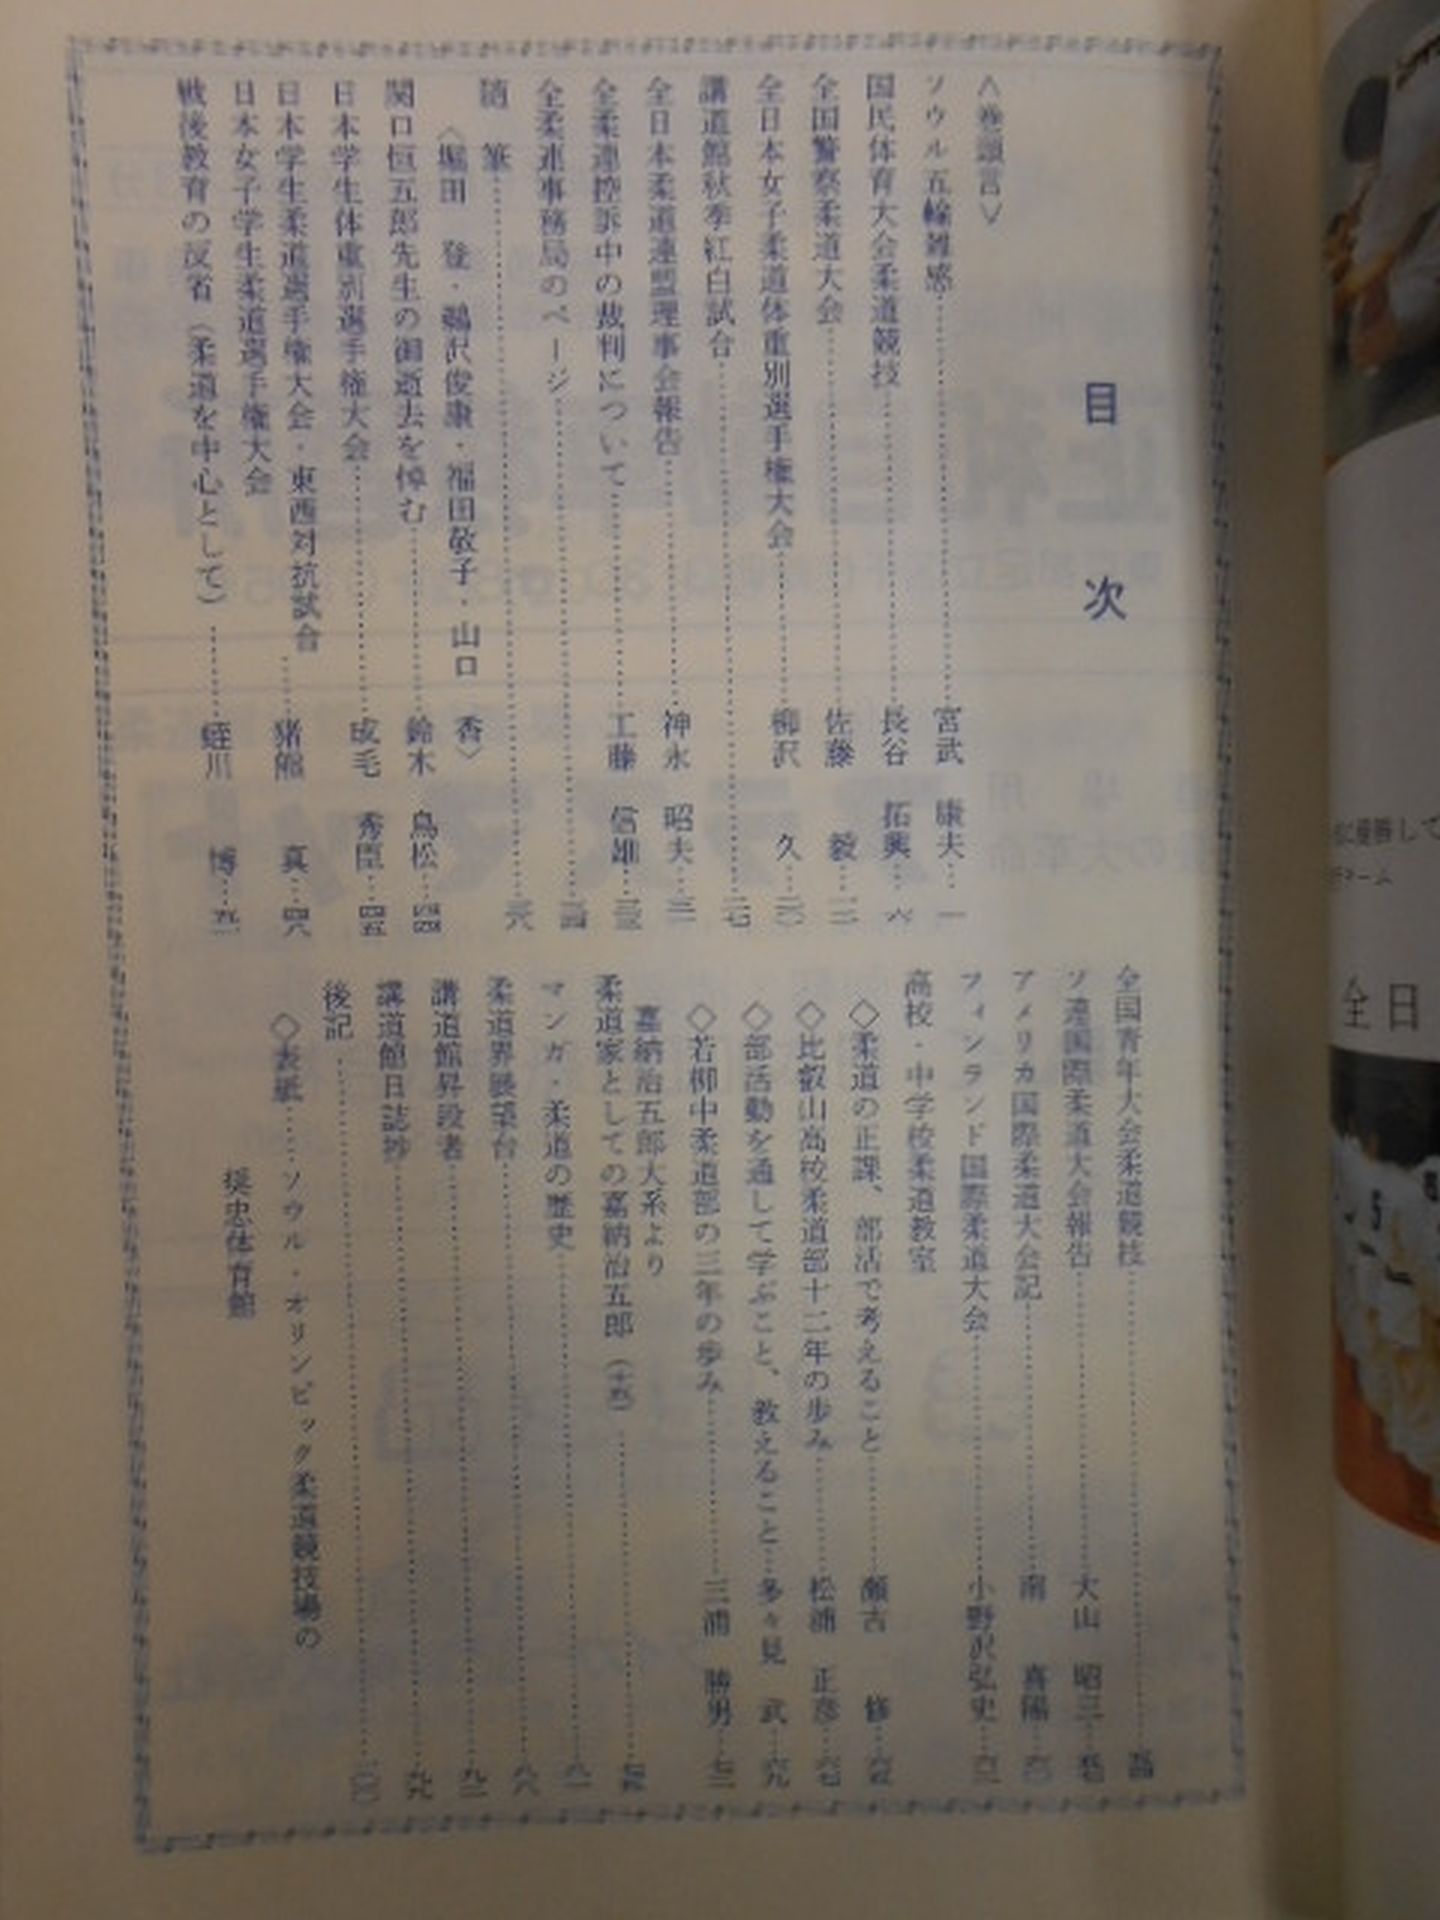 目次
<巻頭言>
ソウル五輪雑感……宮武 康夫…一
国民体育大会柔道競技……長谷 拓興…六
全国警察柔道大会……佐藤 毅…一二
全日本女子柔道体重別選手権大会……柳沢 久…二〇
講道館秋季紅白試合……二七
全日本柔道連盟理事会報告……神永 昭夫…三一
全柔連控訴中の裁判について……工藤 信雄…三三
全柔連事務局のページ……三四
随筆……三六
<堀田 登・鵜沢俊康・福田敬子・山口 香>
関口恒五郎先生の御逝去を悼む……鈴木 鳥松…四四
日本学生体重別選手権大会……成毛 秀臣…四五
日本学生柔道選手権大会・東西対抗試合……猪熊 真…四八
日本女子学生柔道選手権大会
戦後教育の反省(柔道を中心として)……蛭川 博…五一
全国青年大会柔道競技……五四
ソ連国際柔道大会報告……大山 昭三…五七
アメリカ国際柔道大会記……南 喜陽…六〇
フィンランド国際柔道大会……小野沢弘史…六二
高校・中学校柔道教室
◇柔道の正課、部活で考えること……瀬古 修…六五
◇比叡山高校柔道部十二年の歩み……松浦 正彦…六七
◇部活動を通して学ぶこと、教えること…多々見 武…六九
◇若柳中柔道部の三年の歩み……三浦 勝男…七二
嘉納治五郎大系より
柔道家としての嘉納治五郎……七四
マンガ・柔道の歴史……八一
柔道界展望台……八六
講道館昇段者……九二
講道館日誌抄……九九
後記……一〇〇
◇表紙……ソウル・オリンピック柔道競技場の
奨忠体育館
に優勝して
チーム
全日
5